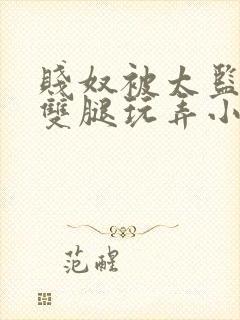 賤奴被太監
雙腿玩弄小
范醒